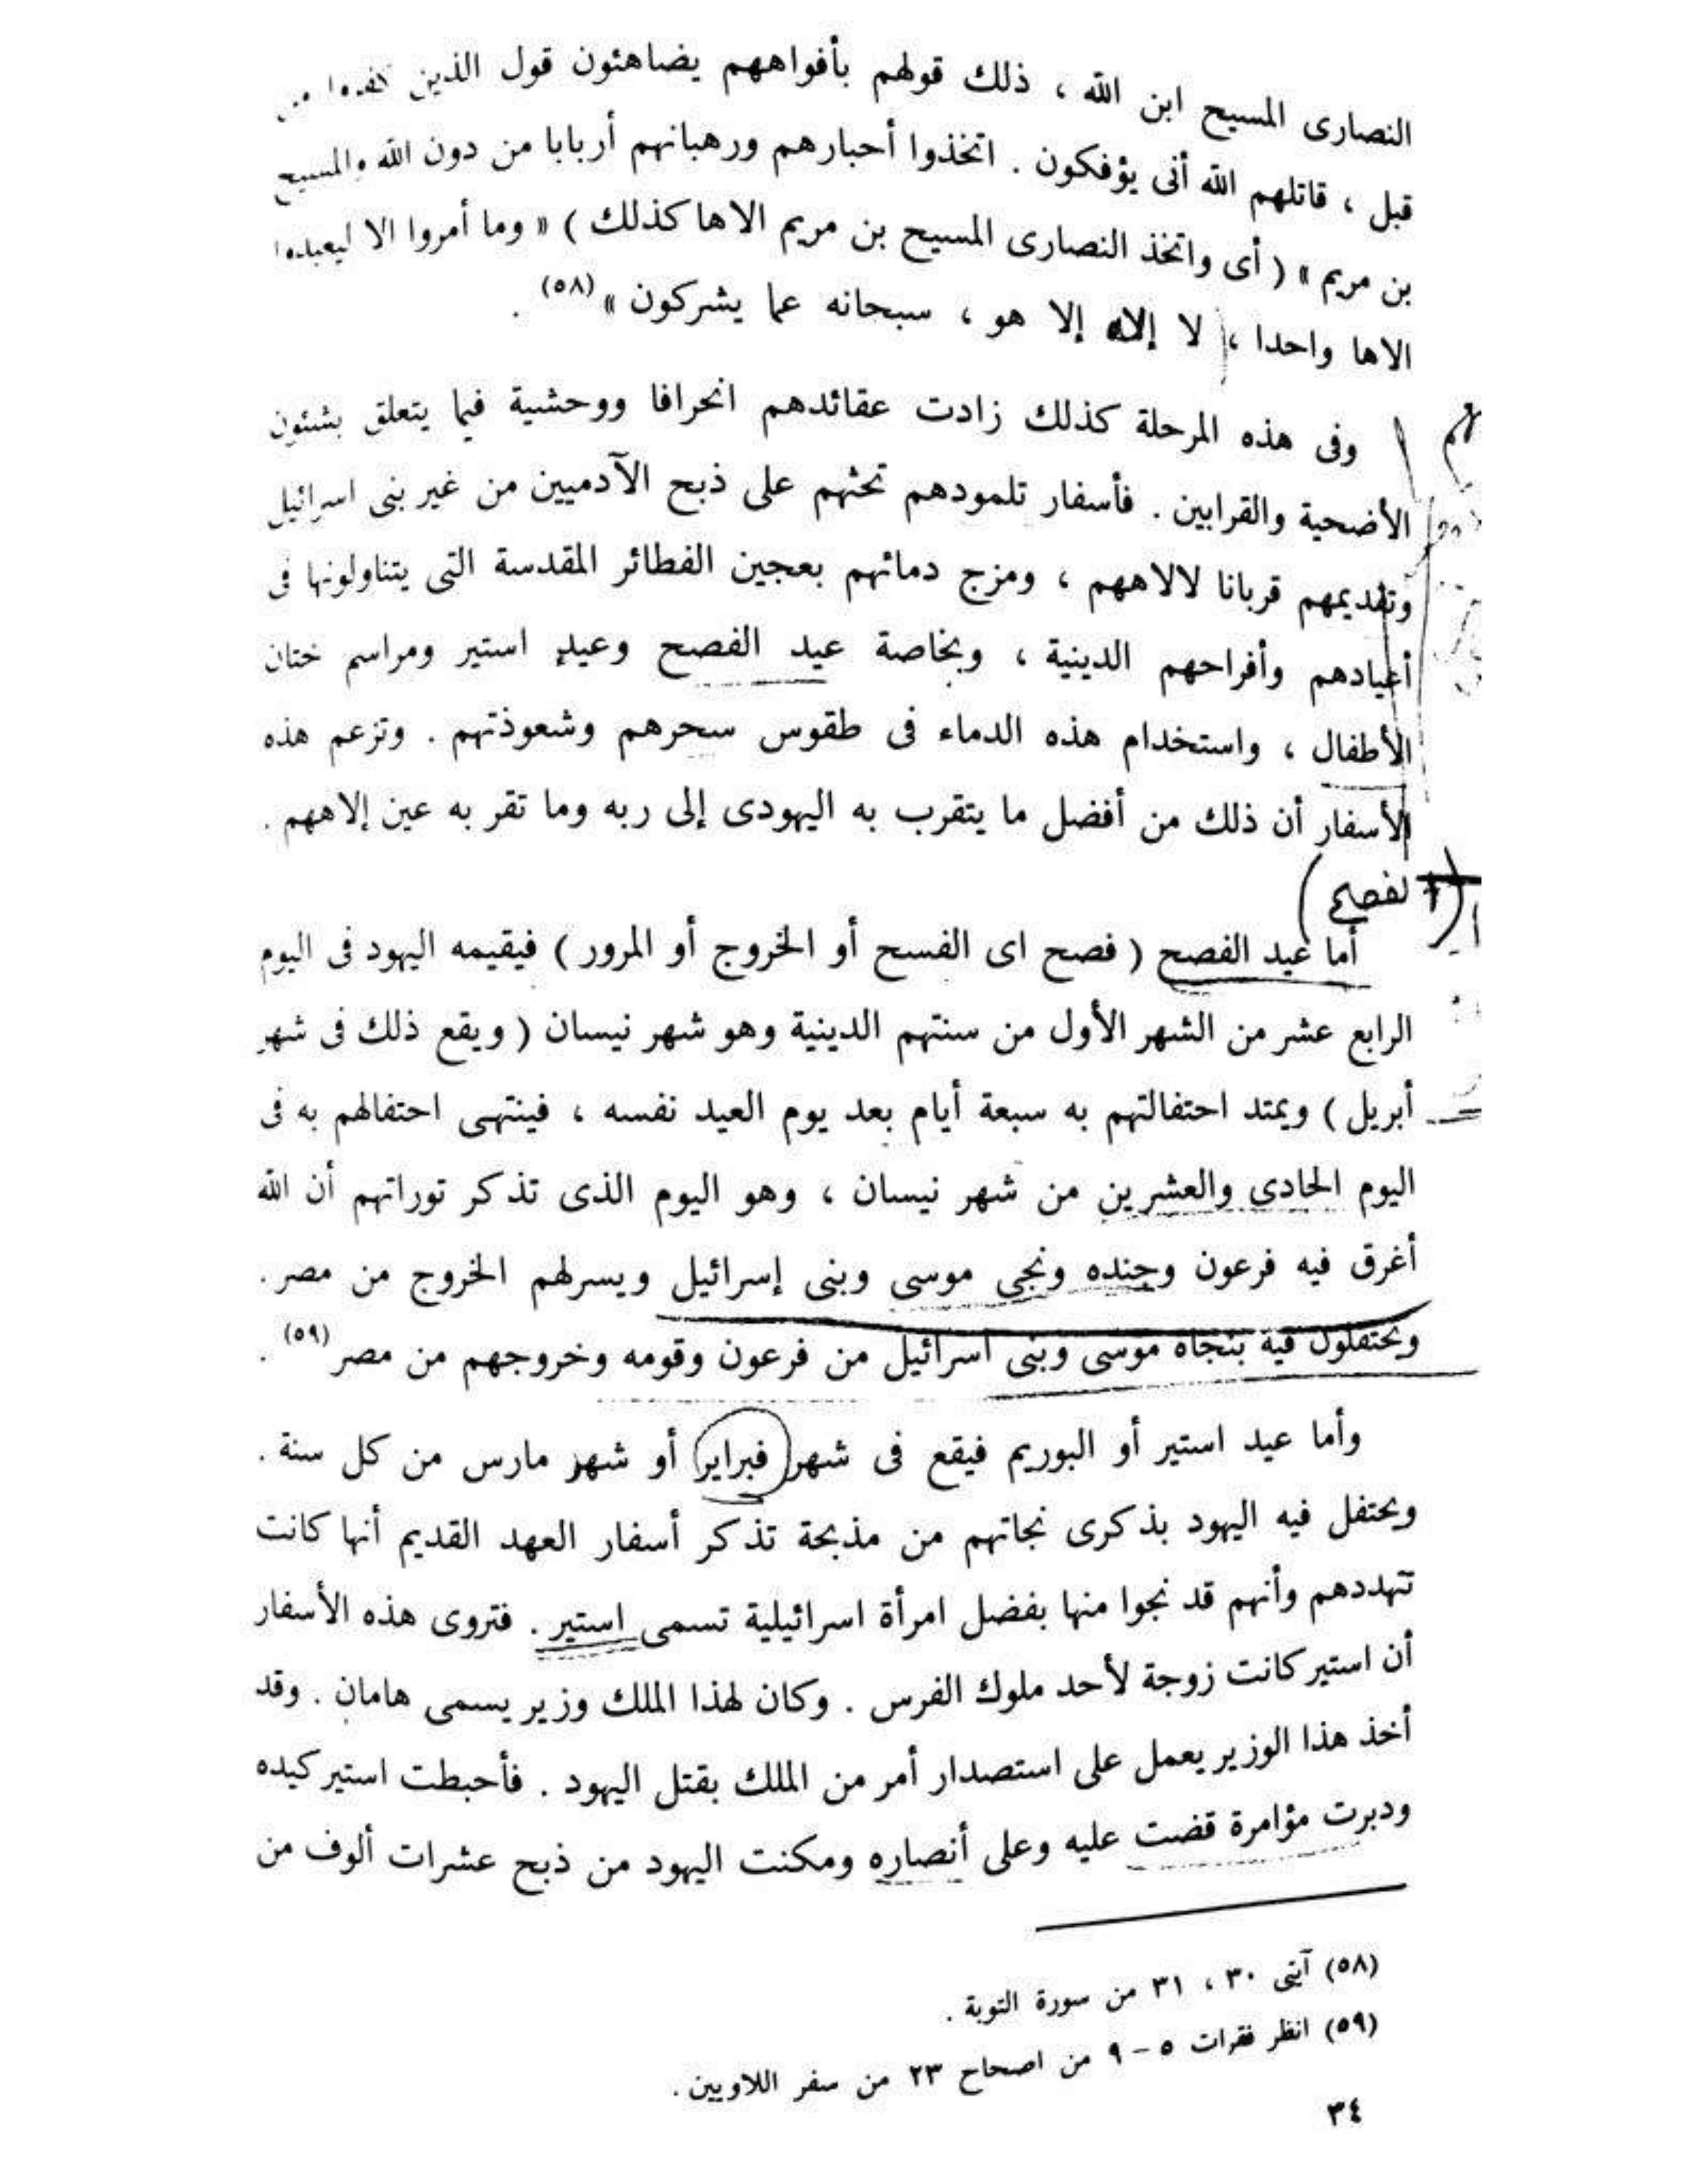 النصارى المسيح ابن الله ، ذلك قولهم بأفواههم يضاهئون قول الذين كفروا من
قبل ، قاتلهم الله أنى يؤفكون . اتخذوا أحبارهم ورهبانهم أربابا من دون الله والمسيح
بن مريم » ( أى واتخذ النصارى المسيح بن مريم الاها كذلك ) « وما أمروا الا ليعبدوا
الاها واحدا ، لا إلاه إلا هو ، سبحانه عما يشركون » (٥٨) .
وفى هذه المرحلة كذلك زادت عقائدهم انحرافا ووحشية فيما يتعلق بشئون
الأضحية والقرابين . فأسفار تلمودهم تحثهم على ذبح الآدميين من غير بنى اسرائيل
وتقديمهم قربانا لالاههم ، ومزج دمائهم بعجين الفطائر المقدسة التى يتناولونها فى
أعيادهم وأفراحهم الدينية ، وبخاصة عيد الفصح وعيد استير ومراسم ختان
الأطفال ، واستخدام هذه الدماء فى طقوس سحرهم وشعوذتهم . وتزعم هذه
الأسفار أن ذلك من أفضل ما يتقرب به اليهودى إلى ربه وما تقر به عين إلاههم .
(الفصح)
أما عيد الفصح ( فصح اى الفسح أو الخروج أو المرور ) فيقيمه اليهود فى اليوم
الرابع عشر من الشهر الأول من سنتهم الدينية وهو شهر نيسان ( ويقع ذلك فى شهر
أبريل ) ويمتد احتفالتهم به سبعة أيام بعد يوم العيد نفسه ، فينتهى احتفالهم به فى
اليوم الحادى والعشرين من شهر نيسان ، وهو اليوم الذى تذكر توراتهم أن الله
أغرق فيه فرعون وجنده ونجى موسى وبنى إسرائيل ويسرلهم الخروج من مصر .
ويحتفلون فيه بنجاه موسى وبنى اسرائيل من فرعون وقومه وخروجهم من مصر (٥٩) .
وأما عيد استير أو البوريم فيقع فى شهر فبراير أو شهر مارس من كل سنة .
ويحتفل فيه اليهود بذكرى نجاتهم من مذبحة تذكر أسفار العهد القديم أنها كانت
تتهددهم وأنهم قد نجوا منها بفضل امرأة اسرائيلية تسمى استير . فتروى هذه الأسفار
أن استير كانت زوجة لأحد ملوك الفرس . وكان لهذا الملك وزير يسمى هامان . وقد
أخذ هذا الوزير يعمل على استصدار أمر من الملك بقتل اليهود . فأحبطت استير كيده
ودبرت مؤامرة قضت عليه وعلى أنصاره ومكنت اليهود من ذبح عشرات ألوف من
(٥٨) آيتى ٣٠ ، ٣١ من سورة التوبة .
(٥٩) انظر فقرات ٥ - ٩ من اصحاح ٢٣ من سفر اللاويين .
٣٤